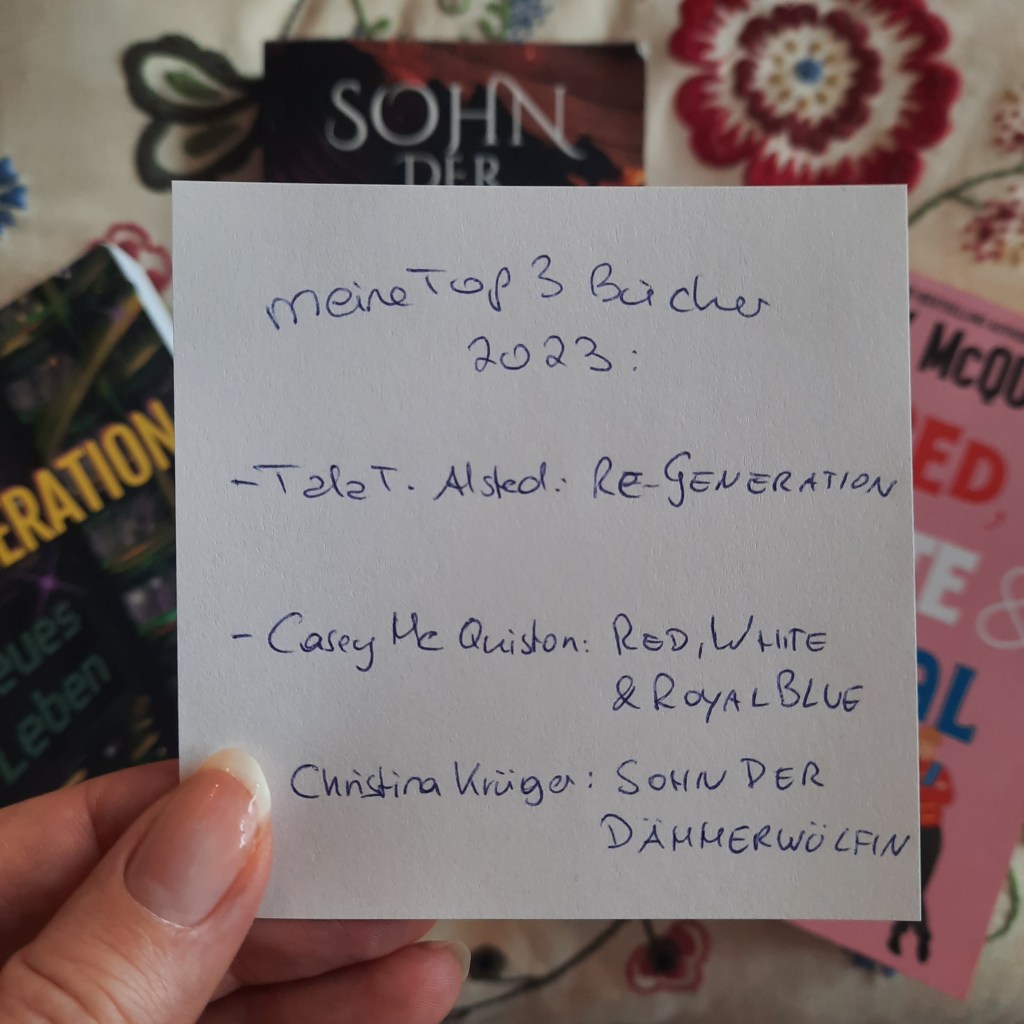 SOHN
DER
meine Top 3 Bücher
2023:
- Tala T. Alsted: RE-GENERATION
- Casey Mc Quiston: RED, WHITE
& ROYAL BLUE
Christina Krüger: SOHN DER
DÄMMERWÖLFIN
ERATION
eues
Leben
McQU
ED,
TE &
AL